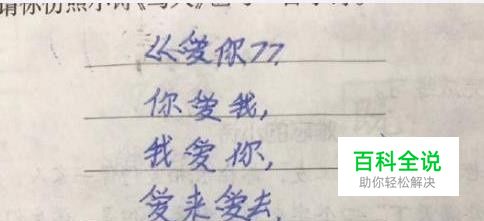 请你仿照小诗
《爱你》
你爱我,
我爱你,
爱来爱去,
百科全说
助你轻松解决